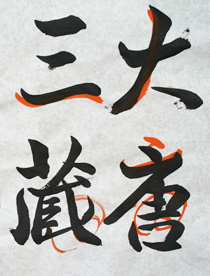 大唐
三蔵